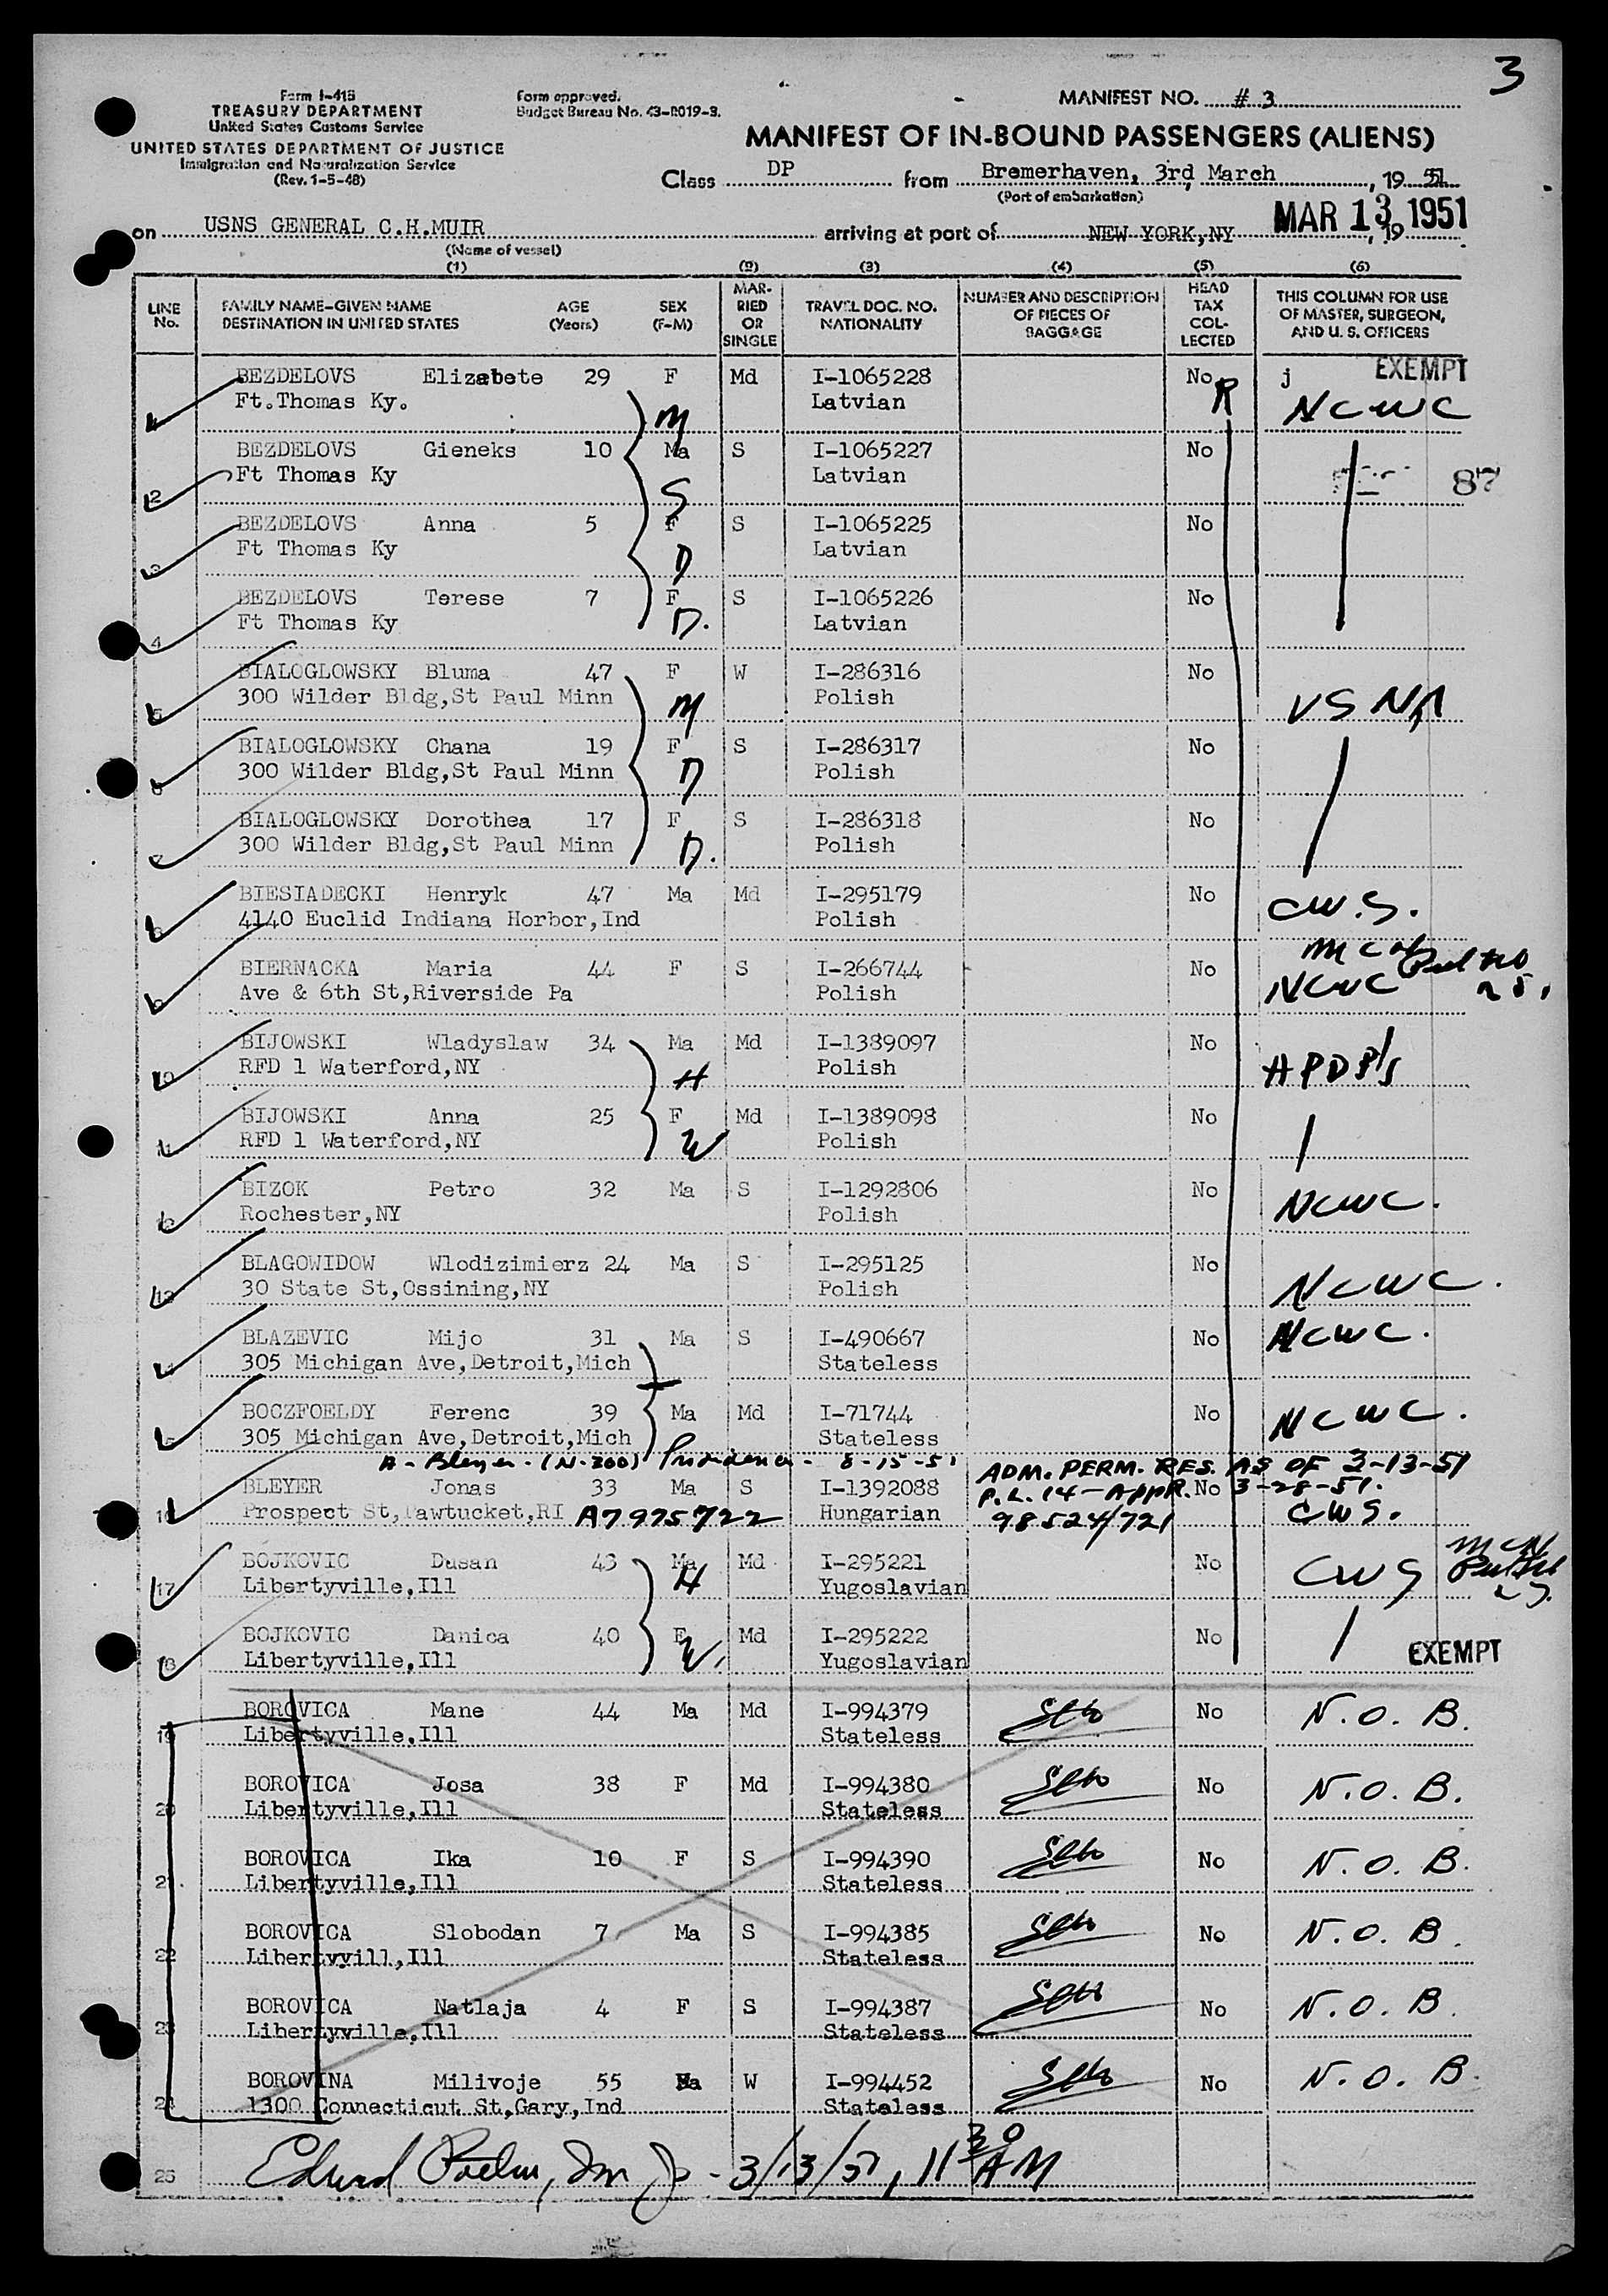 3
Form I-415
TREASURY DEPARTMENT
United States Customs Service
UNITED STATES DEPARTMENT OF JUSTICE
Immigration and Naturalization Service
(Rev. 1-5-48)
Form approved.
Budget Bureau No. 43-R019-3.
MANIFEST NO. # 3
MANIFEST OF IN-BOUND PASSENGERS (ALIENS)
Class DP from Bremerhaven, 3rd March, 19 51
(Port of embarkation)
on USNS GENERAL C.H.MUIR arriving at port of NEW YORK,NY MAR 13 1951, 19
(Name of vessel)
(1) (2) (3) (4) (5) (6)
LINE No. FAMILY NAME-GIVEN NAME DESTINATION IN UNITED STATES AGE (Years) SEX (F-M) MAR-RIED OR SINGLE TRAVEL DOC. NO. NATIONALITY NUMBER AND DESCRIPTION OF PIECES OF BAGGAGE HEAD TAX COL-LECTED THIS COLUMN FOR USE OF MASTER, SURGEON, AND U. S. OFFICERS
BEZDELOVS Elizabete 29 F Md I-1065228 No j EXEMPT
1 Ft.Thomas Ky. M Latvian R NCWC
BEZDELOVS Gieneks 10 Ma S I-1065227 No
2 Ft Thomas Ky S Latvian 87
BEZDELOVS Anna 5 F S I-1065225 No
3 Ft Thomas Ky D Latvian
BEZDELOVS Terese 7 F S I-1065226 No
4 Ft Thomas Ky D. Latvian
BIALOGLOWSKY Bluma 47 F W I-286316 No
5 300 Wilder Bldg,St Paul Minn M Polish VS NA
BIALOGLOWSKY Chana 19 F S I-286317 No
6 300 Wilder Bldg,St Paul Minn D Polish
BIALOGLOWSKY Dorothea 17 F S I-286318 No
7 300 Wilder Bldg,St Paul Minn D. Polish
BIESIADECKI Henryk 47 Ma Md I-295179 No CW.S.
8 4140 Euclid Indiana Harbor,Ind Polish
BIERNACKA Maria 44 F S I-266744 No
9 Ave & 6th St,Riverside Pa Polish NCWC
BIJOWSKI Wladyslaw 34 Ma Md I-1389097 No
10 RFD 1 Waterford,NY H Polish
BIJOWSKI Anna 25 F Md I-1389098 No
11 RFD 1 Waterford,NY W Polish
BIZOK Petro 32 Ma S I-1292806 No NCWC.
12 Rochester,NY Polish
BLAGOWIDOW Wlodizimierz 24 Ma S I-295125 No
13 30 State St,Ossining,NY Polish NCWC.
BLAZEVIC Mijo 31 Ma S I-490667 No NCWC.
14 305 Michigan Ave,Detroit,Mich Stateless
BOCZFOELDY Ferenc 39 Ma Md I-71744 No NCWC.
15 305 Michigan Ave,Detroit,Mich Stateless
A- Bleyer - (N-300) Providence - 8-15-51 ADM. PERM. RES. AS OF 3-13-51
BLEYER Jonas 33 Ma S I-1392088 P.L. 14 - APPR. No 3-28-51.
16 Prospect St,Pawtucket,RI A7975722 Hungarian 98524/721 CWS.
BOJKOVIC Dusan 43 Ma Md I-295221 No CWS
17 Libertyville,Ill H Yugoslavian
BOJKOVIC Danica 40 F Md I-295222 No
18 Libertyville,Ill W. Yugoslavian EXEMPT
BOROVICA Mane 44 Ma Md I-994379 No N.O.B.
19 Libertyville,Ill Stateless
BOROVICA Josa 38 F Md I-994380 No N.O.B.
20 Libertyville,Ill Stateless
BOROVICA Ika 10 F S I-994390 No N.O.B.
21 Libertyville,Ill Stateless
BOROVICA Slobodan 7 Ma S I-994385 No N.O.B.
22 Libertyvill,Ill Stateless
BOROVICA Natlaja 4 F S I-994387 No N.O.B.
23 Libertyville,Ill Stateless
BOROVINA Milivoje 55 Ma W I-994452 No N.O.B.
24 1300 Connecticut St,Gary,Ind Stateless
25 Edward - 3/13/51, 11 30 AM